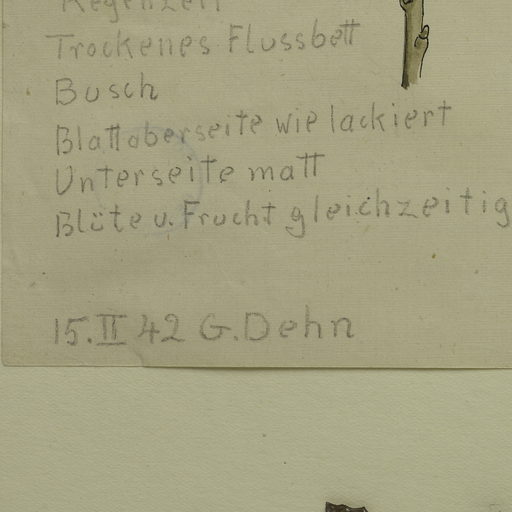 Regenzeit
Trockenes Flussbett
Busch
Blattoberseite wie lackiert
Unterseite matt
Blüte u. Frucht gleichzeitig
15. II 42 G. Dehn